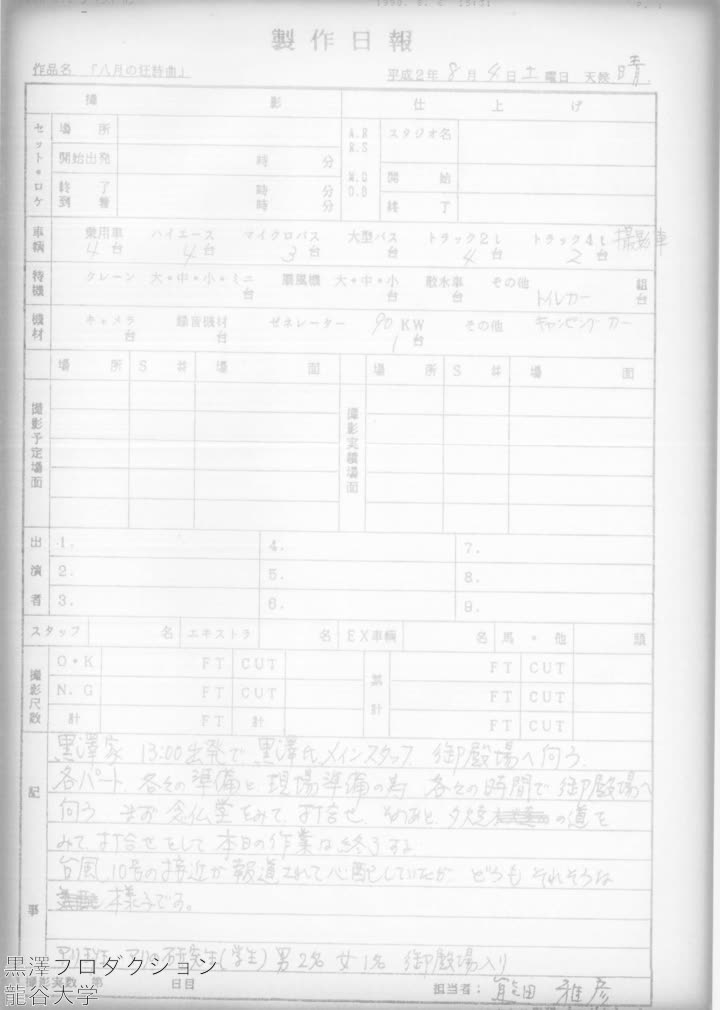 製作日報
作品名 「八月の狂詩曲」 平成2年 8月 4日 土曜日 天候 晴
撮影 仕上げ
セット・ロケ 場所 A.R R.S スタジオ名
開始出発 時 分
終了 時 分 M.O D.B 開始
到着 時 分 終了
車輌 乗用車 4台 ハイエース 4台 マイクロバス 3台 大型バス 台 トラック2t 4台 トラック4t 2台 撮影車
特機 クレーン 大・中・小・ミニ 台 扇風機 大・中・小 台 散水車 台 その他 トイレカー 組 台
機材 キャメラ 台 録音機材 台 ゼネレーター 90KW 1台 その他 キャンピングカー
撮影予定場面 場所 S# 場面 撮影実績場面 場所 S# 場面
出演者 1. 4. 7.
2. 5. 8.
3. 6. 9.
スタッフ 名 エキストラ 名 EX車輌 名 馬・他 頭
撮影尺数 O・K FT CUT 累計 FT CUT
N.G FT CUT FT CUT
計 FT 計 FT CUT
記事
黒澤家 13:00出発で黒澤氏メインスタッフ 御殿場へ向う.
各パート 各々の準備と現場準備の為 各々の時間で御殿場へ
向う まず念仏堂をみて、打合せ、そのあと 夕焼 の道を
みて、打合せをして 本日の作業は終了する
台風 10号の接近が報道されて心配していたが どうもそれそうな
様子です。
研究生(学生) 男2名 女1名 御殿場入り
撮影実数 第 日目 担当者: 熊田 雅彦
黒澤プロダクション
龍谷大学